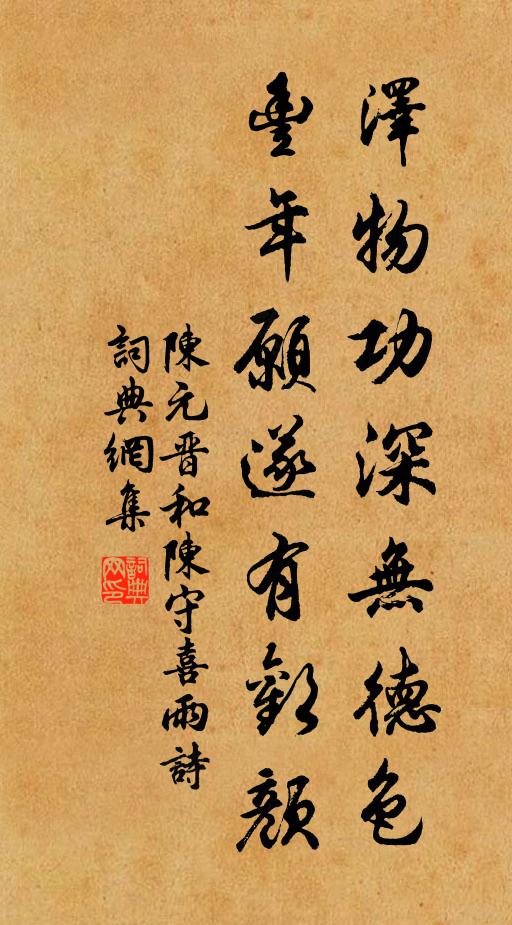 澤物功深無德色
豐年願遂有歡顏
陳元晋和陳守喜雨詩
詞典網集
詞典网印